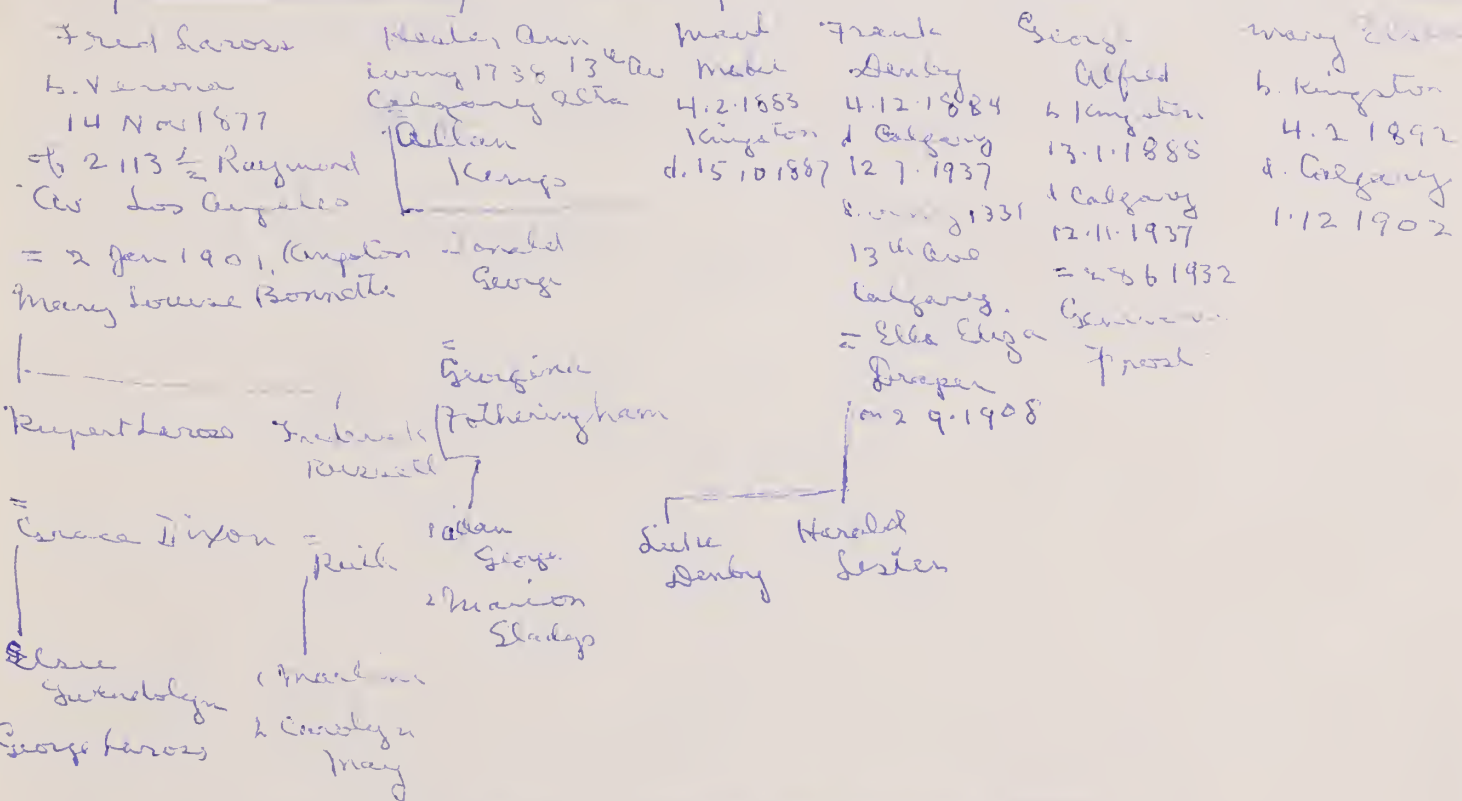 Fred Laross
b. Verona
14 Nov 1877
of 2113 1/2 Raymond
Av Los Angeles
= 2 Jan 1901, Kingston
Mary Louise Bonnette
Rupert Laross
=
Grace Dixon
Elsie
Gwendolyn
George Laross
Frederick
Russell
=
Ruth
1
2 Carolyn
May
Hester Ann
living 1738 13th Av
Calgary Alta
Allan
Kemps
Donald
George
=
Georgina
Fotheringham
1 Alan
George
2 Marion
Gladys
Maud
Mabel
4.2.1883
Kingston
d. 15 10 1887
Frank
Denby
4.12.1884
d Calgary
12 7.1937
1331
13th Ave
Calgary.
= Ella Eliza
Draper
on 2 9.1908
Denby
Harold
Lester
George
Alfred
b Kingston
13.1.1888
d Calgary
12.11.1937
= 28 6 1932
Frost
Mary
b. Kingston
4.2 1892
d. Calgary
1.12 1902